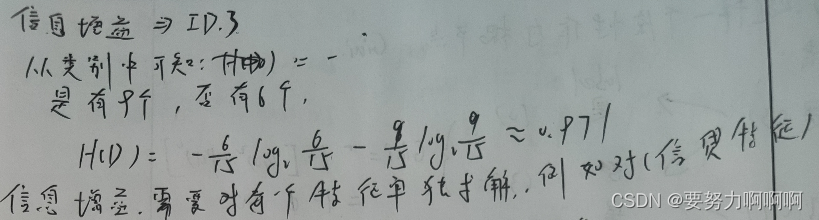 信息增益 ⇒ ID.3
从类别中可知: H(D) = -
是有9个, 否有6个,
H(D) = -6/15 log₂ 6/15 - 9/15 log₂ 9/15 ≈ 0.971
信息增益. 需要对每个特征单独求解. 例如对(信贷特征)
CSDN @要努力啊啊啊